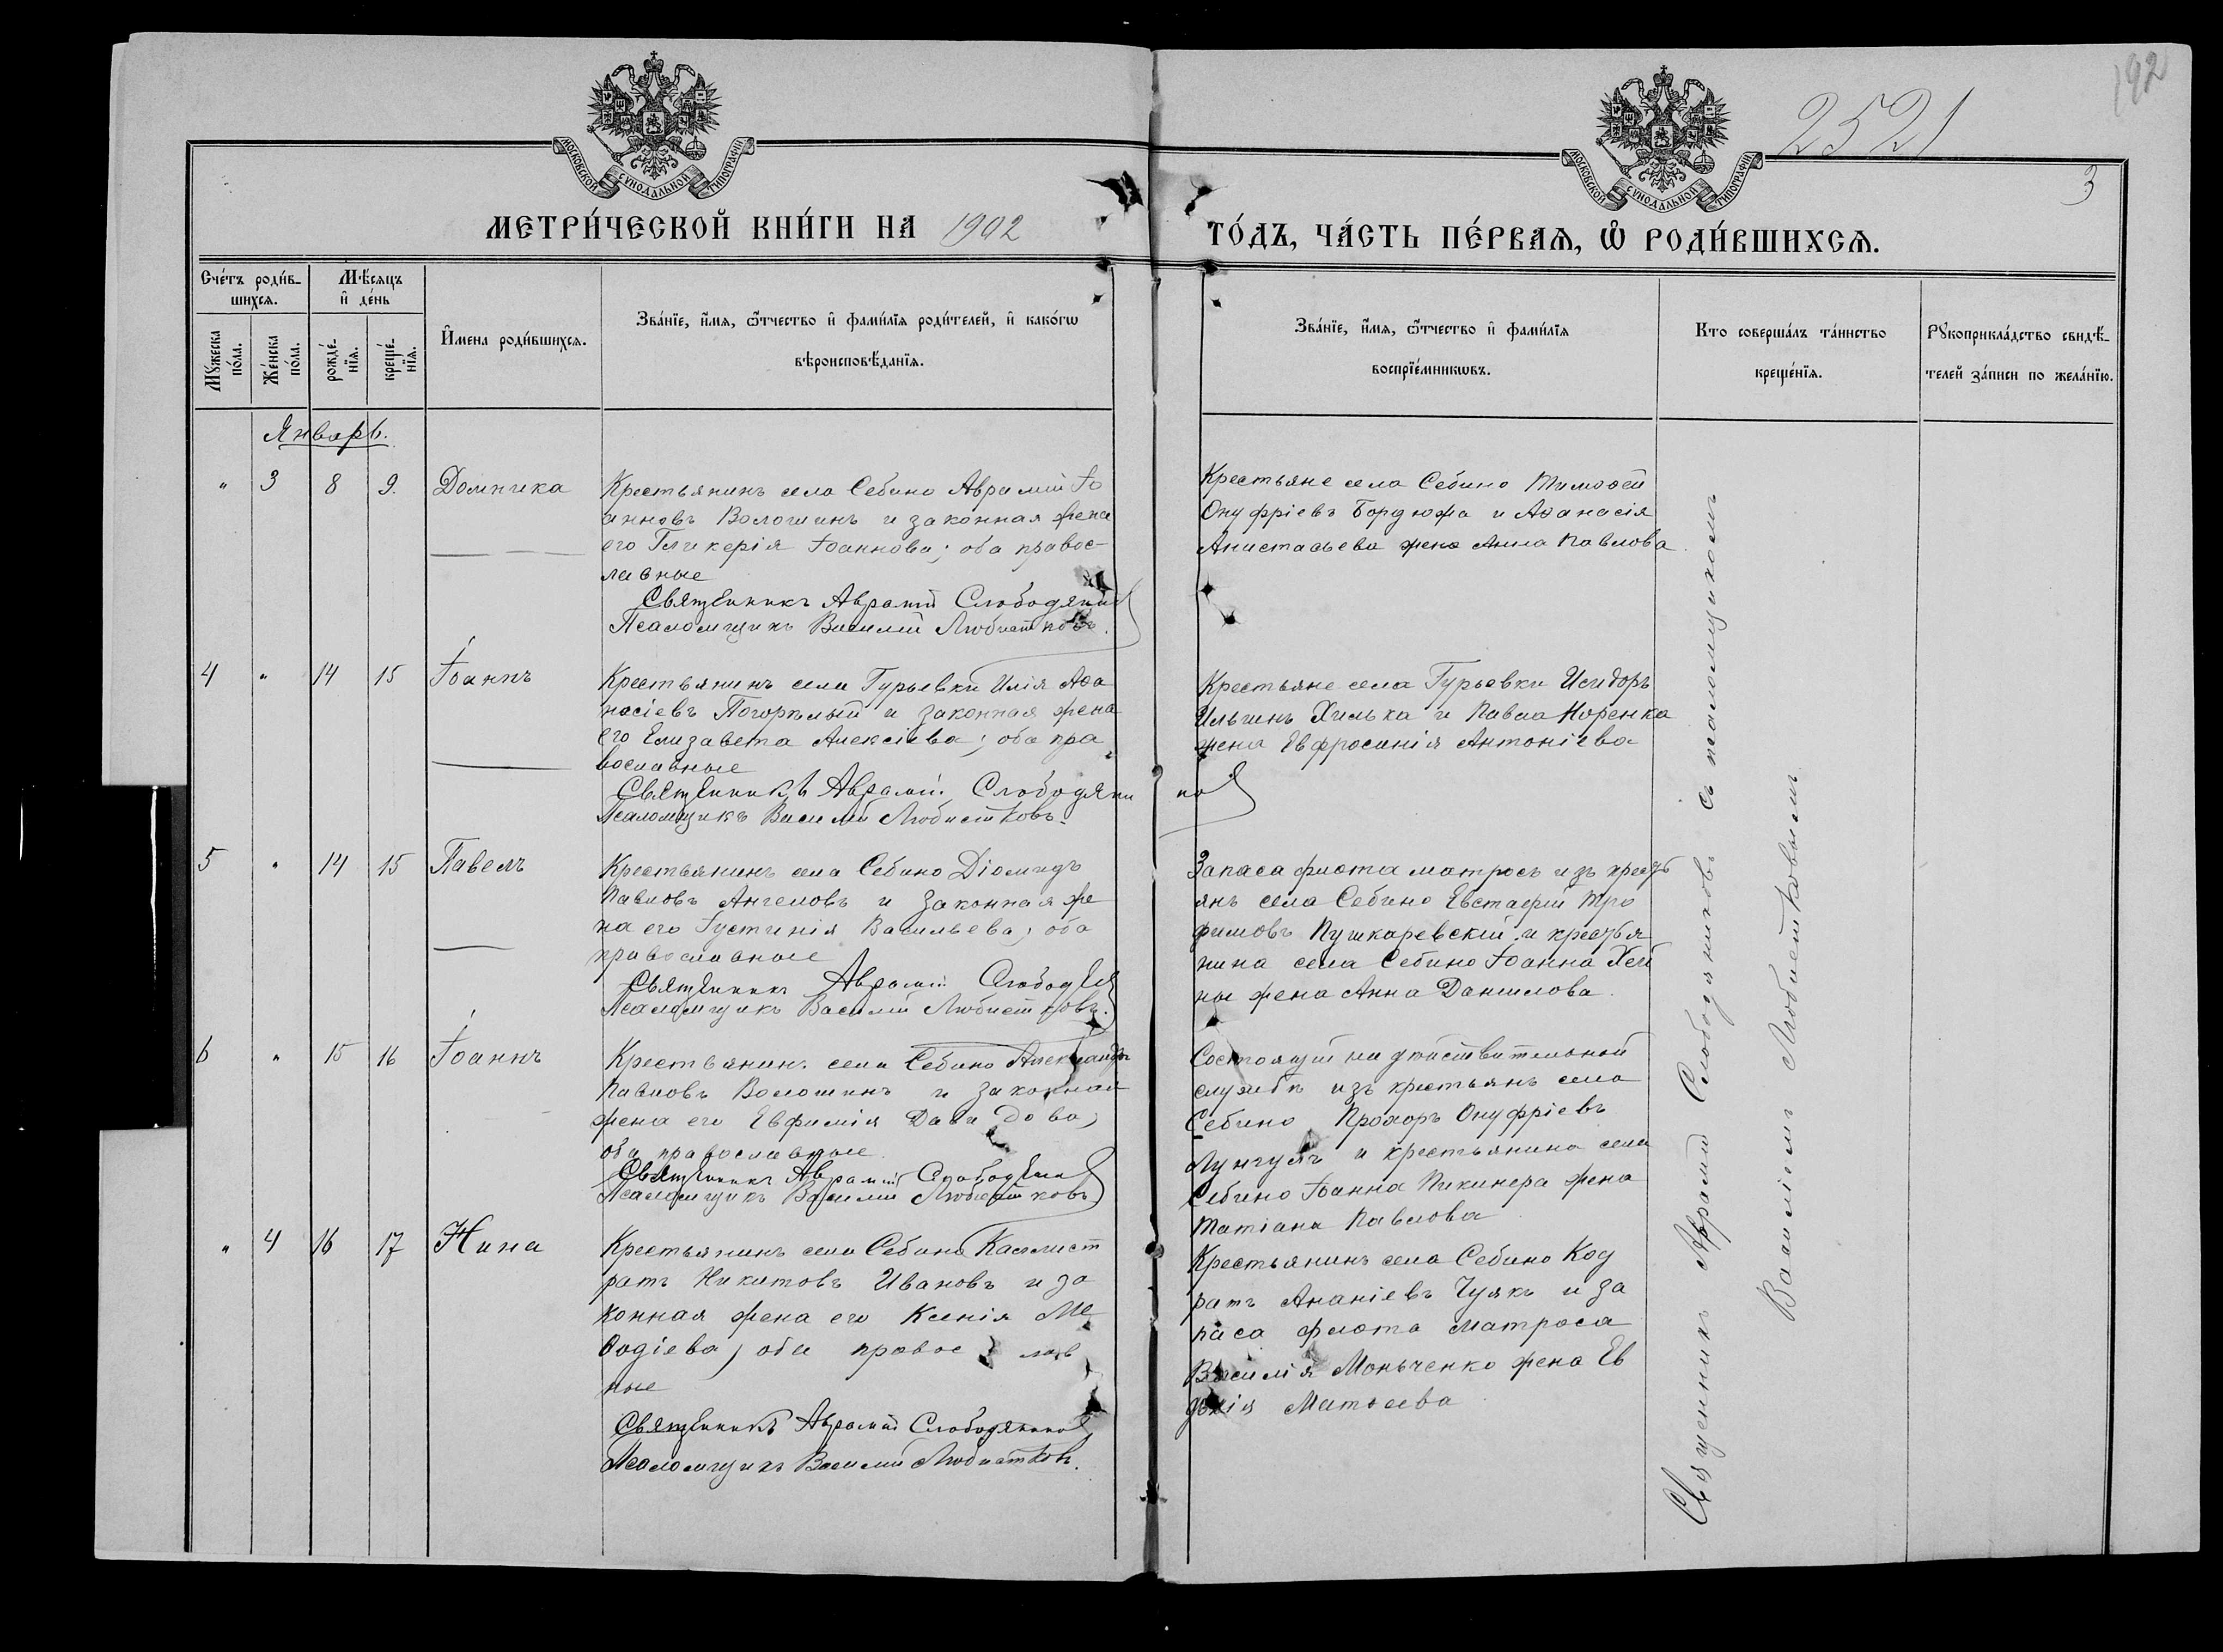 192
2521
3
МОСКОВСКОЙ СУНОДАЛЬНОЙ ТИПОГРАФІИ
МОСКОВСКОЙ СУНОДАЛЬНОЙ ТИПОГРАФІИ
МЕТРИ́ЧЕСКОЙ КНИ́ГИ НА 1902
ГО́ДЪ, ЧА́СТЬ ПЕ́РВАѦ, Ѡ҆ РОДИ́ВШИХСѦ.
Сче́тъ роди́в-
шихсѧ.
Мѣ́сѧцъ
и҆ де́нь
Мꙋ́жеска
по́ла.
Же́нска
по́ла.
рожде́-
нїѧ.
креще́-
нїѧ.
И҆мена роди́вшихсѧ.
Зва́нїе, и҆́мѧ, ѻ҆́тчество и҆ фами́лїѧ роди́телей, и҆ како́гѡ
вѣроисповѣ́данїѧ.
Зва́нїе, и҆́мѧ, ѻ҆́тчество и҆ фами́лїѧ
воспрїе́мникѡвъ.
Кто соверша́лъ та́инство
креще́нїѧ.
Рꙋкоприкла́дство свидѣ́-
телей за́писи по жела́нїю.
Январь.
" 3 8 9. Домника
Крестьянинъ села Себино Аврамій Іо
анновъ Волошинъ и законная жена
его Гликерія Іоаннова; оба правос-
лавные
Священникъ Аврамій
Псаломщикъ Василій Любистковъ.
Крестьяне села Себино Тимоѳей
Онуфріевъ Бордюжа и Аѳанасія
жена Анна Павлова
4 " 14 15 Іоаннъ
Крестьянинъ села Гурьевки Илія Аѳа
насіевъ Погорѣлый и законная жена
его Елизавета Алексіева; оба пра
вославные
Священникъ Аврамій Слободяни
ко
Псаломщикъ Василій Любистковъ.
Крестьяне села Гурьевки Исидоръ
Ильинъ Хилька и Павла Коренка
жена Евфросинія Антоніева
5 " 14 15 Павелъ
Крестьянинъ села Себино Діомидъ
Павловъ Ангеловъ и законная же
на его Іустинія Васильева; оба
православные
Священникъ Аврамій
Псаломщикъ Василій Любистковъ.
Запаса флота матросъ изъ кресть
янъ села Себино Евстафій Тро
фимовъ Пушкаревскій и крестья
нина села Себино Іоанна
ны жена Анна Данилова.
6 " 15 16 Іоаннъ
Крестьянинъ села Себино Александръ
Павловъ Волошинъ и законная
жена его Евфимія Давидова;
оба православные.
Священникъ Аврамій
Псаломщикъ Василій Любистковъ
Состоящій на дѣйствительной
службѣ изъ крестьянъ села
Себино Прохоръ Онуфріевъ
Лунгулъ и крестьянина села
Себино Іоанна Пикинера жена
Татіана Павлова
" 4 16 17 Нина
Крестьянинъ села Себино Каллист
ратъ Никитовъ Ивановъ и за
конная жена его Ксенія Ме
ѳодіева; оба правос лав
ные
Священникъ Аврамій
Псаломщикъ Василій Любистковъ.
Крестьянинъ села Себино Код
ратъ Ананіевъ Чуякъ и за
паса флота матроса
Василія Моньченко жена Ев
докія Матѳеева
Священникъ Аврамій Слободяниковъ съ псаломщикомъ
Василіемъ Любистковымъ